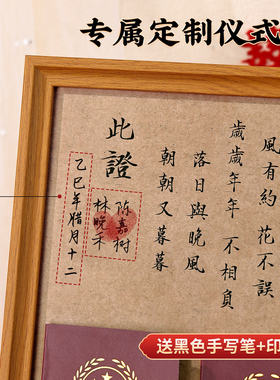 专属定制仪式
風有約 花不誤
歲歲年年 不相負
落日與晚風
朝朝又暮暮
此證
陈嘉树
林晚禾
乙巳年腊月十二
送黑色手写笔+印